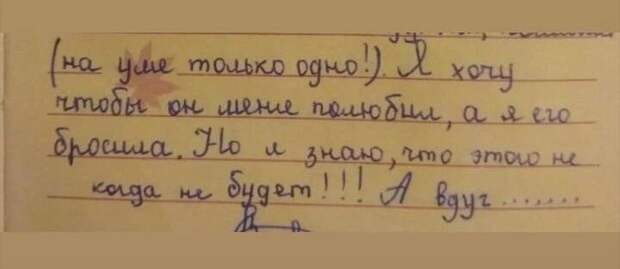 (на уме только одно!). Я хочу
чтобы он меня полюбил, а я его
бросила. Но я знаю, что этого не
когда не будет!!! А вдруг.......